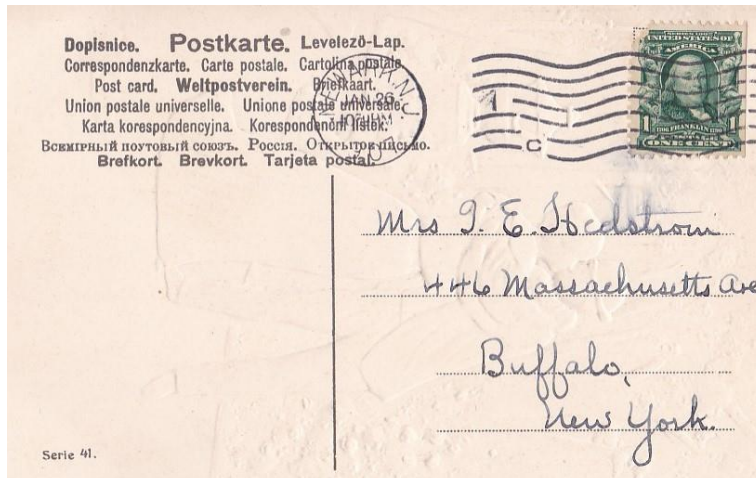 Dopisnice. Postkarte. Levelező-Lap.
Correspondenzkarte. Carte postale. Cartolina postale.
Post card. Weltpostverein. Briefkaart.
Union postale universelle. Unione postale universale.
Karta korespondencyjna. Korespondenční lístek.
Всемірный почтовый союзъ. Россія. Открытое письмо.
Brefkort. Brevkort. Tarjeta postal.
NEWARK, N.J.
JAN 26
1
C
SERIES 1902
UNITED STATES OF
AMERICA
1 FRANKLIN 1
ONE CENT
Mrs I. E. Hedstrom
446 Massachusetts Ave
Buffalo,
New York.
Serie 41.